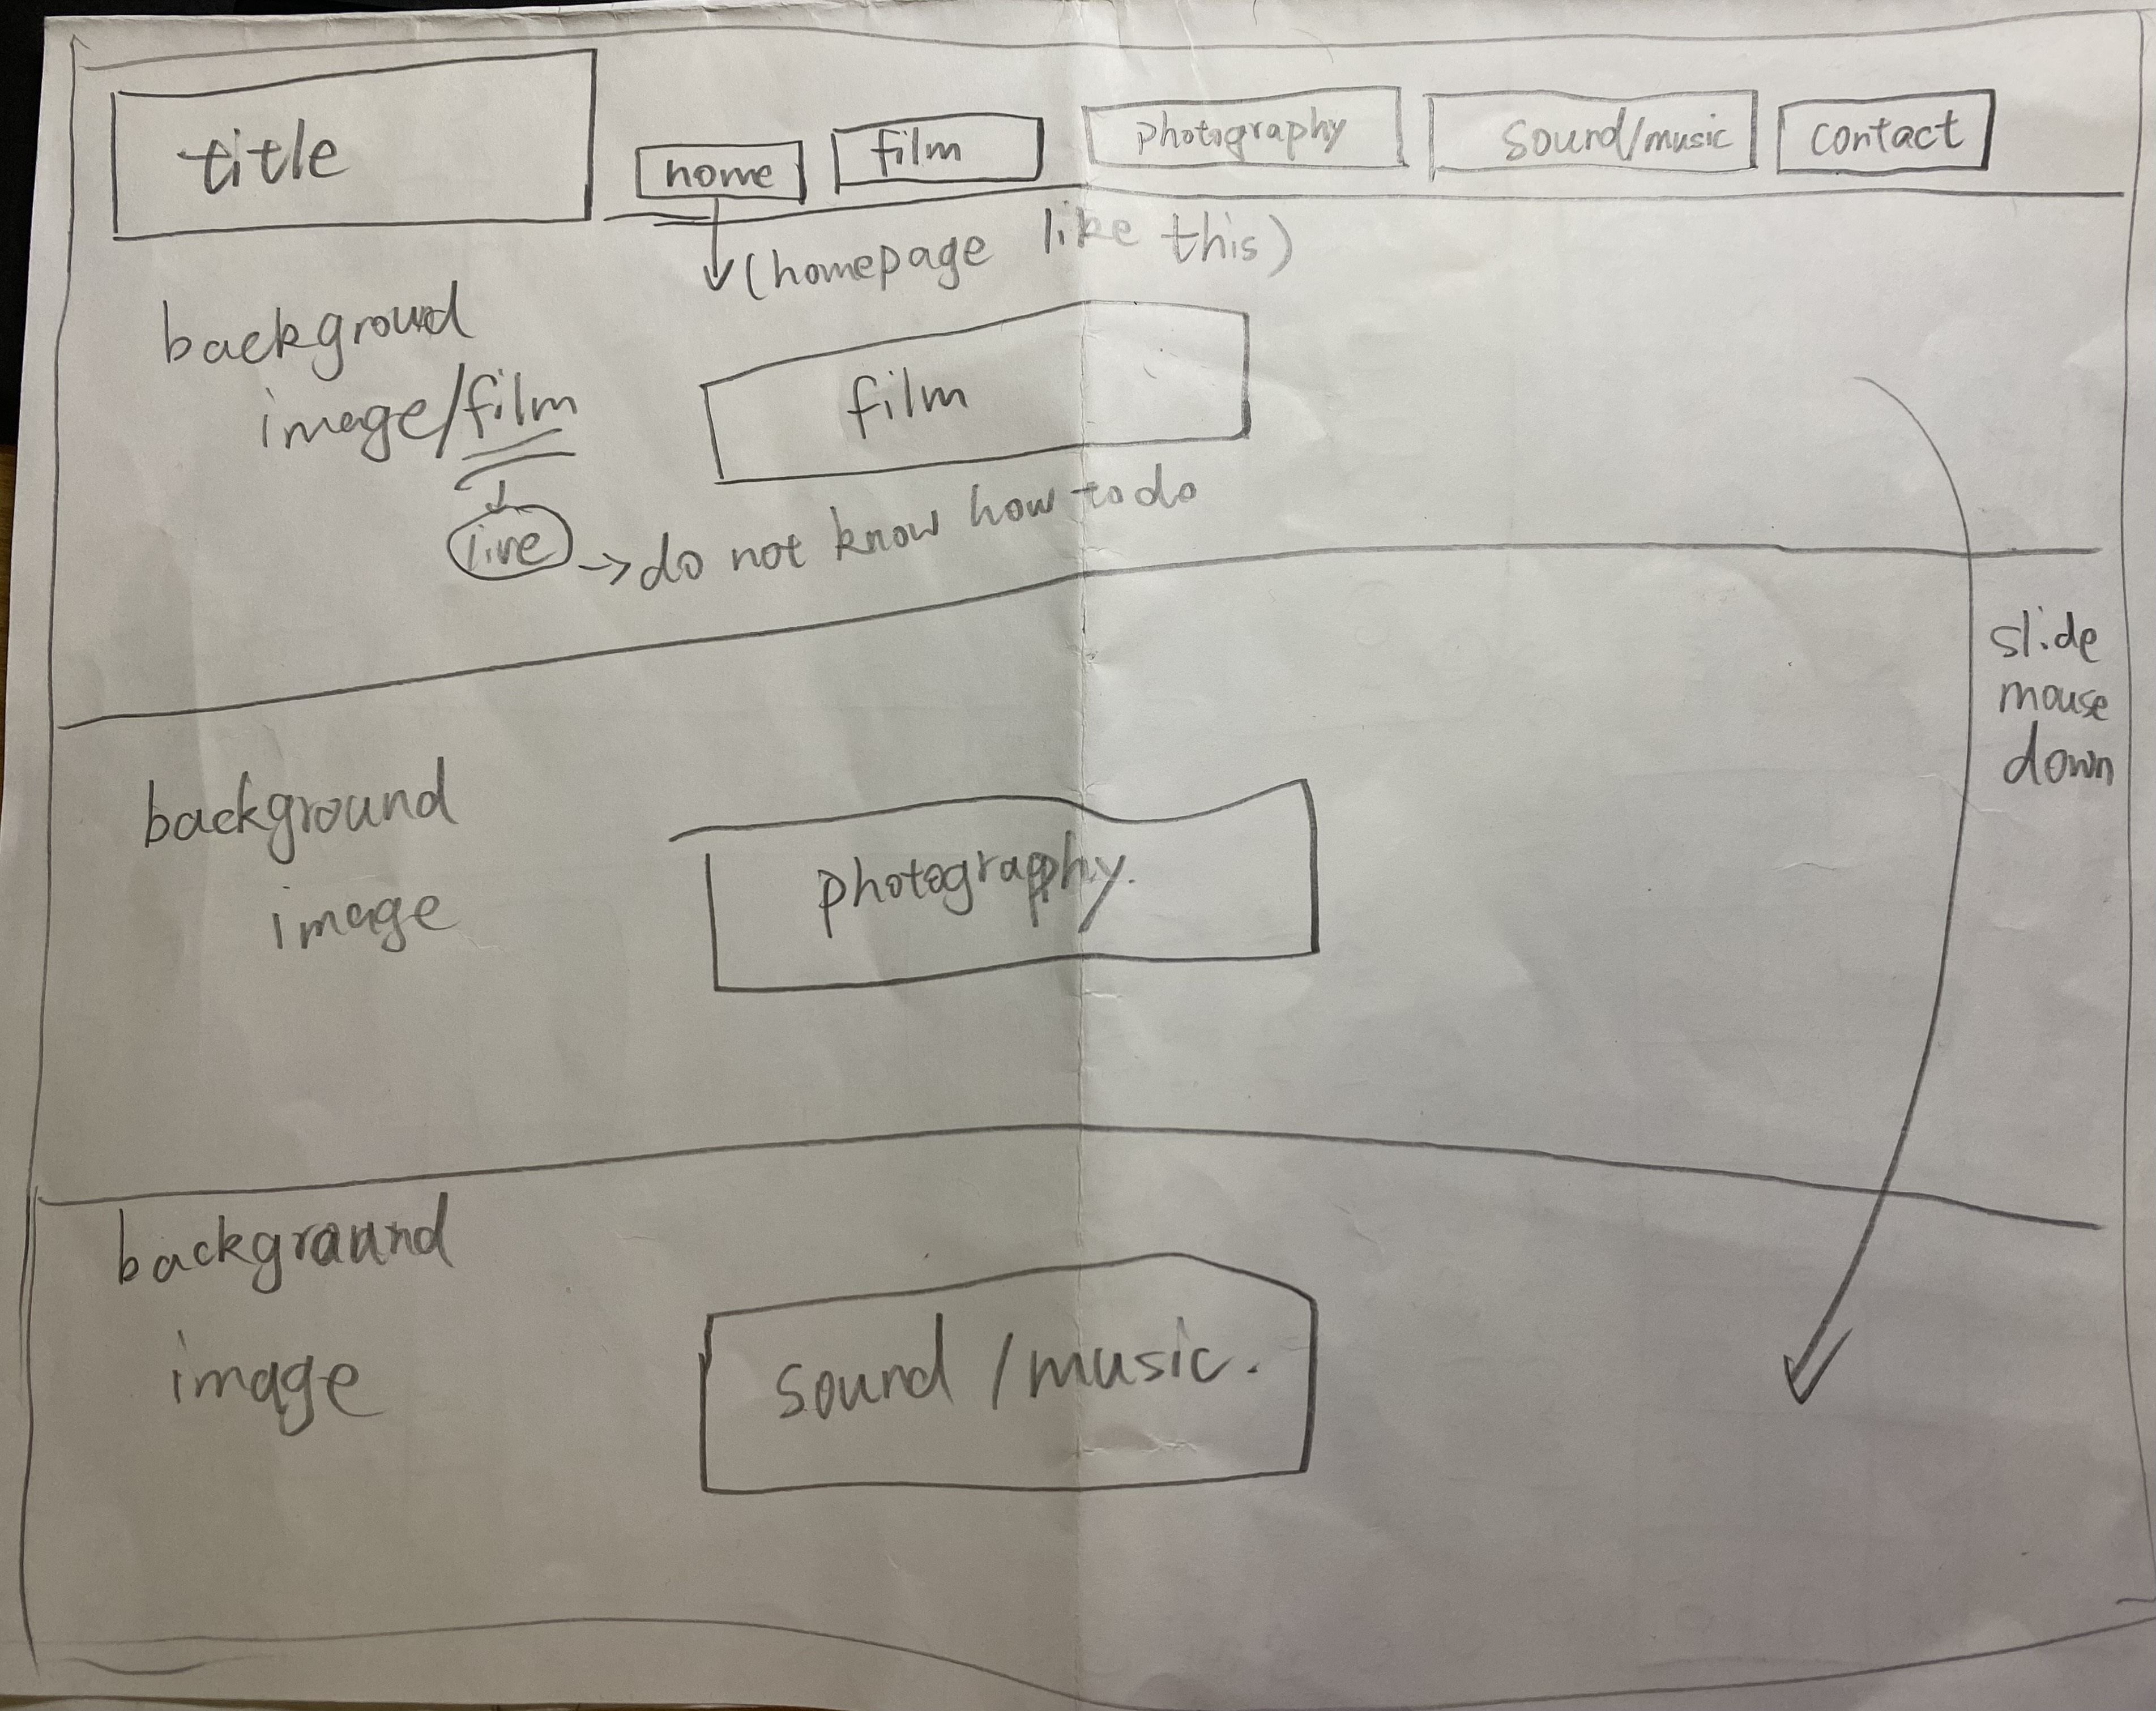 title
home
film
photography
Sound/music
contact
(homepage like this)
background
image/film
live → do not know how to do
film
slide
mouse
down
background
image
photography.
background
image
Sound/music.